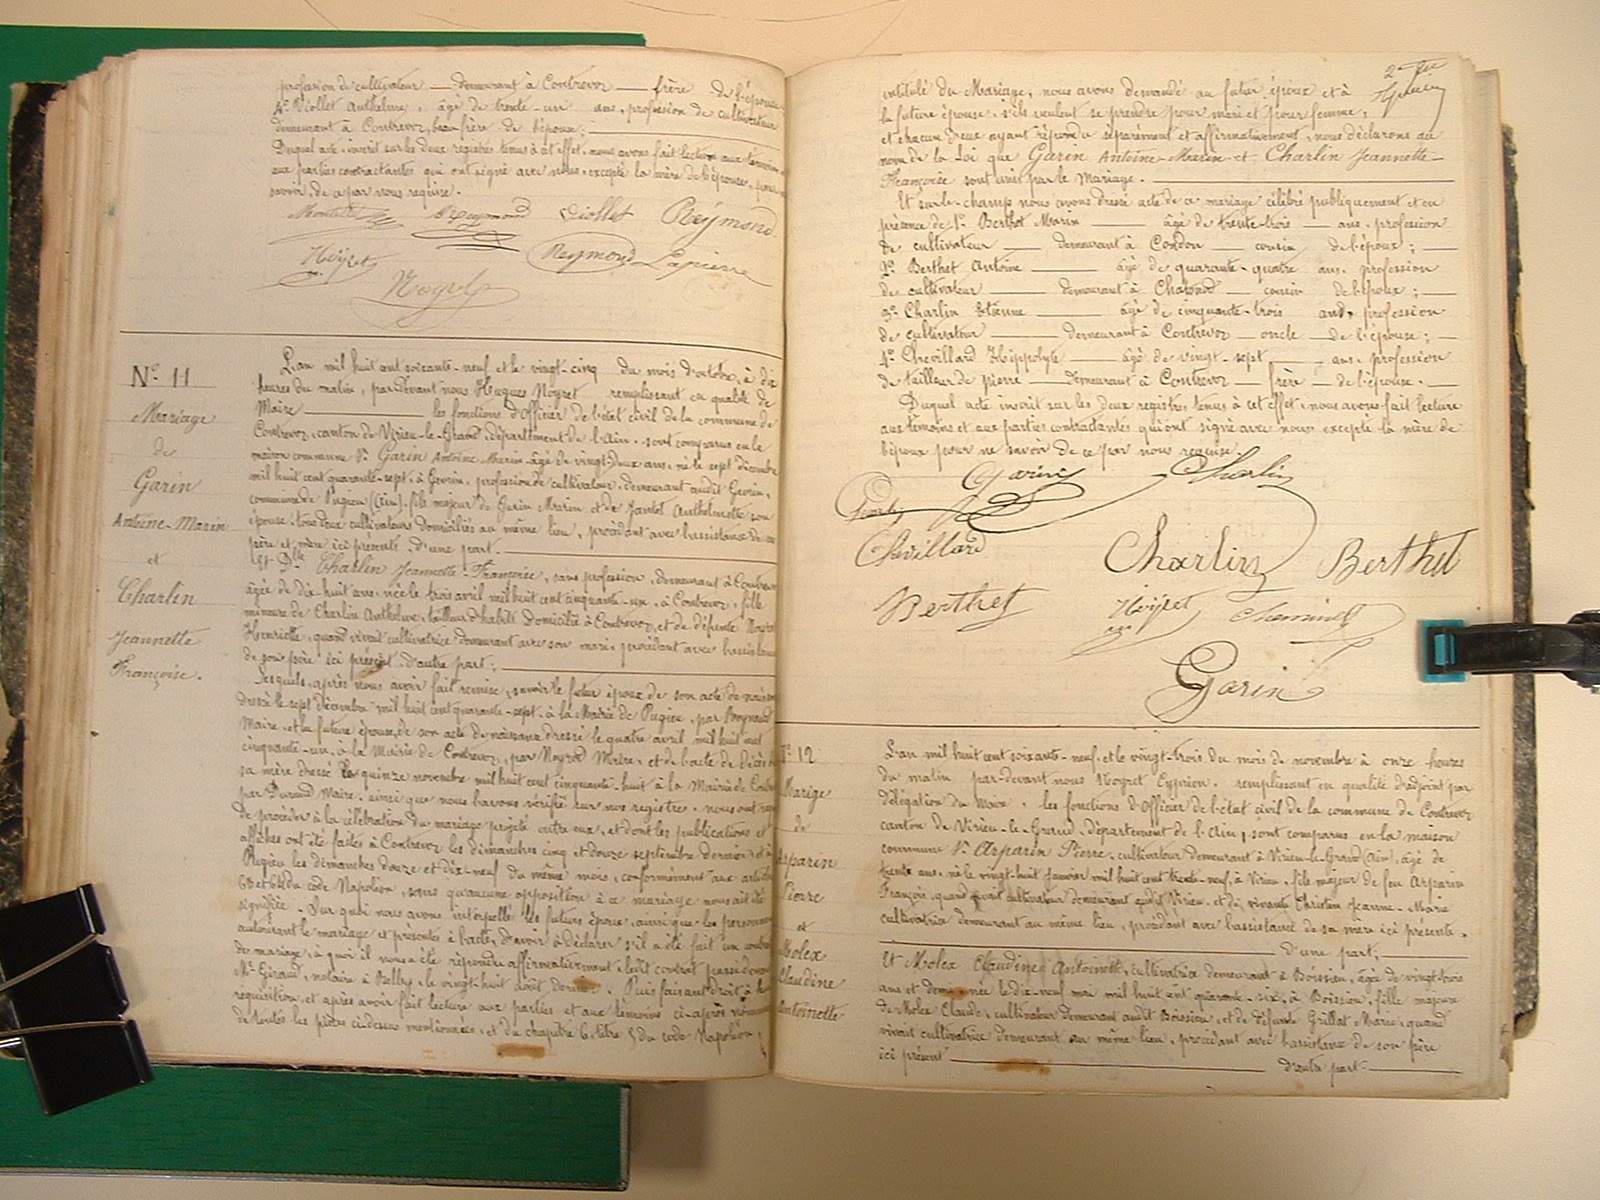 profession de cultivateur demeurant à Contrevoz frère de l'épouse
4° Viollet Anthelme, âgé de trente-un ans, profession de cultivateur
demeurant à Contrevoz, beau-frère de l'épouse;
Duquel acte, inscrit sur les deux registres tenus à cet effet, nous avons fait lecture aux témoins
aux parties contractantes qui ont signé avec nous, excepté la mère de l'épouse, pour
savoir, de ce par nous requise.
Reymond Viollet Reymond
Reymond Lapierre
Noyret
N° 11
Mariage
de
Garin
Antoine-Marin
et
Charlin
Jeannette
Françoise.
L'an mil huit cent soixante-neuf et le vingt-cinq du mois d'octobre, à dix
heures du matin, par-devant nous Noyret remplissant en qualité de
Maire les fonctions d'Officier de l'état civil de la commune de
Contrevoz, canton de Virieu-le-Grand, département de l'Ain, sont comparus en la
maison commune Sr Garin Antoine-Marin âgé de vingt-deux ans, né le sept décembre
mil huit cent quarante-sept, à Gevrin, profession de cultivateur, demeurant audit Gevrin,
commune de Pugieu (Ain), fils majeur de Garin Marin et de Jantet Anthelmette son
épouse, tous deux cultivateurs domiciliés au même lieu, procédant avec l'assistance de ses
père et mère ici présents, d'une part.
Et Dlle Charlin Jeannette-Françoise, sans profession, demeurant à Contrevoz
âgée de dix-huit ans, née le trois avril mil huit cent cinquante-un, à Contrevoz, fille
mineure de Charlin Anthelme, tailleur d'habits domicilié à Contrevoz, et de défunte
Henriette, quand vivait cultivatrice demeurant avec son mari, procédant avec l'assistance
de son père ici présent, d'autre part;
Lesquels, après nous avoir fait remise, savoir le futur époux de son acte de naissance
dressé le sept décembre mil huit cent quarante-sept, à la Mairie de Pugieu, par Reynaud
Maire, et la future épouse, de son acte de naissance dressé le quatre avril mil huit cent
cinquante-un, à la Mairie de Contrevoz, par Noyret Maire, et de l'acte de décès de
sa mère dressé le quinze novembre mil huit cent cinquante-huit à la Mairie de
par Durand Maire, ainsi que nous l'avons vérifié sur nos registres, nous ont requis
de procéder à la célébration du mariage projeté entre eux, et dont les publications et
affiches ont été faites à Contrevoz les dimanches cinq et douze septembre dernier, et à
Pugieu les dimanches douze et dix-neuf du même mois, conformément aux articles
63 et 64 du code Napoléon, sans qu'aucune opposition à ce mariage nous ait été
signifiée. Sur quoi nous avons interpellé les futurs époux, ainsi que les personnes
autorisant le mariage et présentes à l'acte, d'avoir à déclarer s'il a été fait un contrat
de mariage, à quoi il nous a été répondu affirmativement, ledit contrat passé devant
Me Giraud, notaire à Belley, le vingt-huit août dernier. Puis faisant droit à leur
réquisition, et après avoir fait lecture aux parties et aux témoins ci-après nommés
de toutes les pièces ci-dessus mentionnées, et du chapitre 6, titre 5 du code Napoléon,
intitulé du Mariage, nous avons demandé au futur époux et à
la future épouse, s'ils veulent se prendre pour mari et pour femme;
et chacun d'eux ayant répondu séparément et affirmativement, nous déclarons au
nom de la Loi que Garin Antoine-Marin et Charlin Jeannette-
Françoise sont unis par le Mariage.
Et sur-le-champ nous avons dressé acte de ce mariage célébré publiquement et en
présence de 1° Berthet Marin âgé de trente-trois ans, profession
de cultivateur demeurant à Condon cousin de l'époux;
2° Berthet Antoine âgé de quarante-quatre ans, profession
de cultivateur demeurant à Chatonod cousin de l'époux;
3° Charlin Etienne âgé de cinquante-trois ans, profession
de cultivateur demeurant à Contrevoz oncle de l'épouse;
4° Chevillard Hippolyte âgé de vingt-sept ans, profession
de tailleur de pierre demeurant à Contrevoz frère de l'épouse.
Duquel acte inscrit sur les deux registres tenus à cet effet, nous avons fait lecture
aux témoins et aux parties contractantes qui ont signé avec nous excepté la mère de
l'époux pour ne savoir de ce par nous requise.
Garin Charlin
Chevillard Charlin Berthet
Berthet
Garin
N° 12
Mariage
de
Arparin
Pierre
et
Molex
Claudine
Antoinette
L'an mil huit cent soixante-neuf, et le vingt-trois du mois de novembre à onze heures
du matin par-devant nous Noyret Cyprien, remplissant en qualité d'adjoint par
délégation du Maire, les fonctions d'Officier de l'état civil de la commune de Contrevoz
canton de Virieu-le-Grand, département de l'Ain, sont comparus en la maison
commune Sr Arparin Pierre, cultivateur demeurant à Virieu-le-Grand (Ain), âgé de
trente ans, né le vingt-huit janvier mil huit cent trente-neuf, à Virieu, fils majeur de feu Arparin
François, quand vivait cultivateur demeurant audit Virieu, et de vivante Chrétien Jeanne-Marie
cultivatrice demeurant au même lieu, procédant avec l'assistance de sa mère ici présente,
d'une part;
Et Molex Claudine Antoinette, cultivatrice demeurant à Boissieu, âgée de vingt-trois
ans et demi, née le dix-neuf mai mil huit cent quarante-six, à Boissieu, fille majeure
de Molex Claude, cultivateur demeurant audit Boissieu, et de défunte Grillat Marie, quand
vivait cultivatrice demeurant au même lieu, procédant avec l'assistance de son père
ici présent d'autre part.